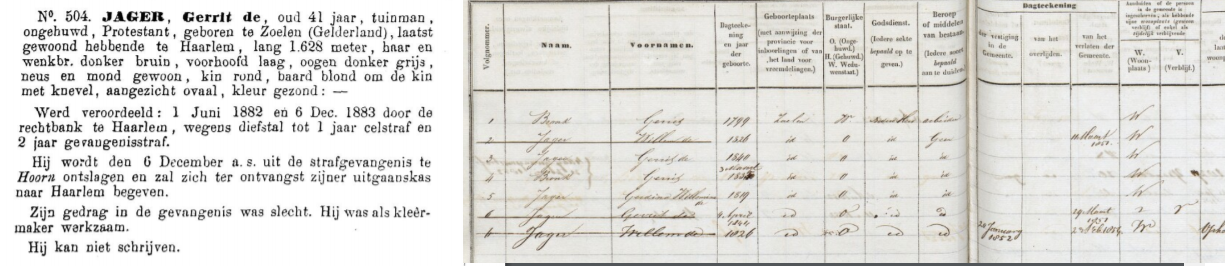 Nº. 504. JAGER, Gerrit de, oud 41 jaar, tuinman,
ongehuwd, Protestant, geboren te Zoelen (Gelderland), laatst
gewoond hebbende te Haarlem, lang 1.628 meter, haar en
wenkbr. donker bruin, voorhoofd laag, oogen donker grijs,
neus en mond gewoon, kin rond, baard blond om de kin
met knevel, aangezicht ovaal, kleur gezond: —
Werd veroordeeld: 1 Juni 1882 en 6 Dec. 1883 door de
rechtbank te Haarlem, wegens diefstal tot 1 jaar celstraf en
2 jaar gevangenisstraf.
Hij wordt den 6 December a. s. uit de strafgevangenis te
Hoorn ontslagen en zal zich ter ontvangst zijner uitgaanskas
naar Haarlem begeven.
Zijn gedrag in de gevangenis was slecht. Hij was als kleêr-
maker werkzaam.
Hij kan niet schrijven.
Volgnommer.
Naam.
Voornamen.
Dagteeke-
ning
en jaar
der
geboorte.
Geboorteplaats
(met aanwijzing der
provincie voor
inboorlingen of van
het land voor
vreemdelingen.)
Burgerlijke
staat.
O. (Onge-
huwd.)
H. (Gehuwd.)
W. Wedu-
wenstaat.)
Godsdienst.
(Iedere sekte
bepaald op te
geven.)
Beroep
of middelen
van bestaan.
(Iedere soort
bepaald
aan te duiden.)
Dagteekening
der vestiging
in de
Gemeente.
van het
overlijden.
van het
verlaten der
Gemeente.
W.
(Woon-
plaats)
V.
(Verblijf.)
1 Gerrit 1799 W W
2 Jager Willem de 1826 id O id W
Jager Gerrit de 1840 id O id id W
4 Gerrit id O id id W
5 Jager 1819 id O id id W
6 Jager Gerrit de 1844 id O id id
6 Jager Willem de 1826 id O id id 1852 W